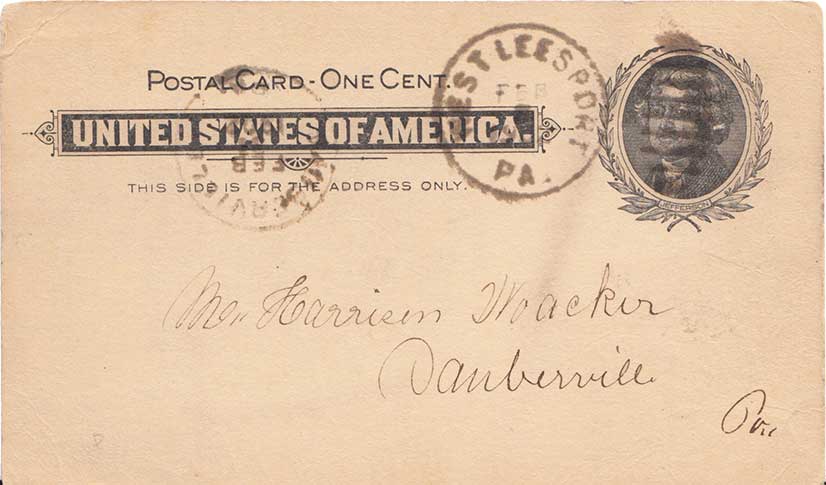 POSTAL CARD - ONE CENT.
UNITED STATES OF AMERICA.
THIS SIDE IS FOR THE ADDRESS ONLY.
WEST LEESPORT
FEB
PA.
FEB
JEFFERSON
Mr. Harrison Woacker
Dauberville